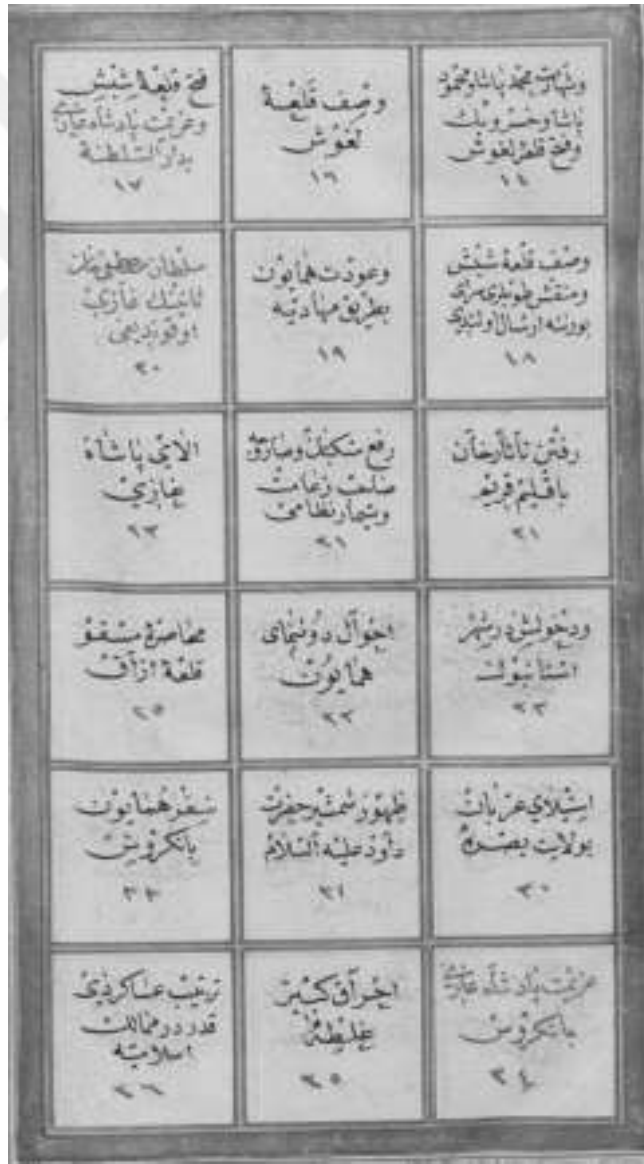 وشهادت محمد پاشا ومحمود
پاشا وخسرو بك
وفتح قلعۀ لغوش
١٤
وصف قلعۀ
لغوش
١٦
فتح قلعۀ شبش
وعزیمت پادشاه غازی
بدار السلطنة
١٧
وصف قلعۀ شبش
ومنقش طوپلری
ارسال اولندی
١٨
وعودت همایون
بطریق مهادیه
١٩
سلطان مصطفی خان
ثانینك غازی
اوقوندیغی
٢٠
رفتن تاتارخان
باقلیم قریم
٢١
رفع سكبان وصاروجه
زعامت
وتیمار نظامی
٢١
الای پاشاه
غازی
ودخولش در شهر
استانبول
٢٣
احوال دوننمای
همایون
٢٣
محاصرۀ مسقو
قلعۀ ازاق
٢٥
استیلای عربان
بولایت بصره
٣٠
ظهور شمشیر حضرت
داود علیه السلام
٣١
سفر همایون
بانكروس
٣٣
عزیمت پادشاه غازی
بانكروس
٣٤
احراق كبیر
غلطه
٣٥
ترتیب عساكر ذی
قدر در ممالك
اسلامیه
٣٦